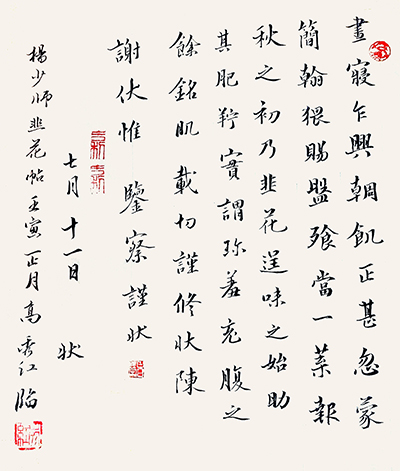 晝寢乍興輖飢正甚忽蒙
簡翰猥賜盤飱當一葉報
秋之初乃韭花逞味之始助
其肥羜實謂珍羞充腹之
餘銘肌載切謹修狀陳
謝伏惟 鑒察謹狀
七月十一日 狀
楊少師韭花帖壬寅正月高秀 臨